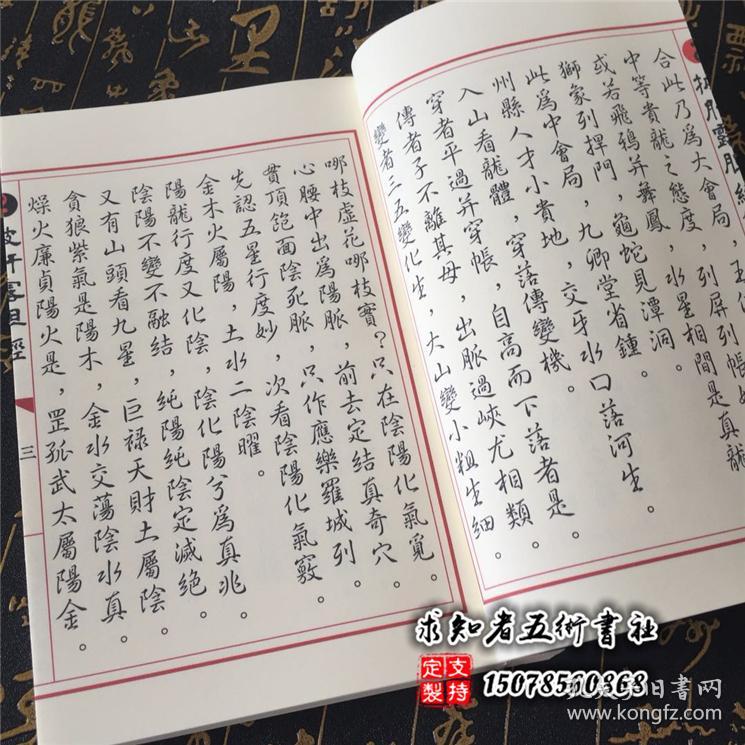 合此乃為大會局，列屏列帳
中等貴龍之態度，水星相間是真龍
或若飛鴉并舞鳳，龜蛇見潭洞。
獅象列捍門，九卿堂省鍾。
此為中會局，交牙水口落河生。
州縣人才小貴地，穿落傳變機。
入山看龍體，自高而下落者是。
穿者平過并穿帳，出脈過峽尤相類。
傳者子不離其母，大山變小粗生細。
變者二五變化生，
哪枝虛花哪枝實？只在陰陽化氣覓。
心腰中出為陽脈，前去定結真奇穴。
貫頂飽面陰死脈，只作應樂羅城列。
先認五星行度妙，次看陰陽化氣竅。
金木火屬陽，土水二陰曜。
陽龍行度又化陰，陰化陽兮為真兆。
陰陽不變不融結，純陽純陰定滅絕。
又有山頭看九星，巨祿天財土屬陰。
貪狼紫氣是陽木，金水交蕩陰水真。
燥火廉貞陽火是，罡孤武太屬陽金。
三
求知者五術書社
支持定製
15078510868
旧書网
www.kongfz.com